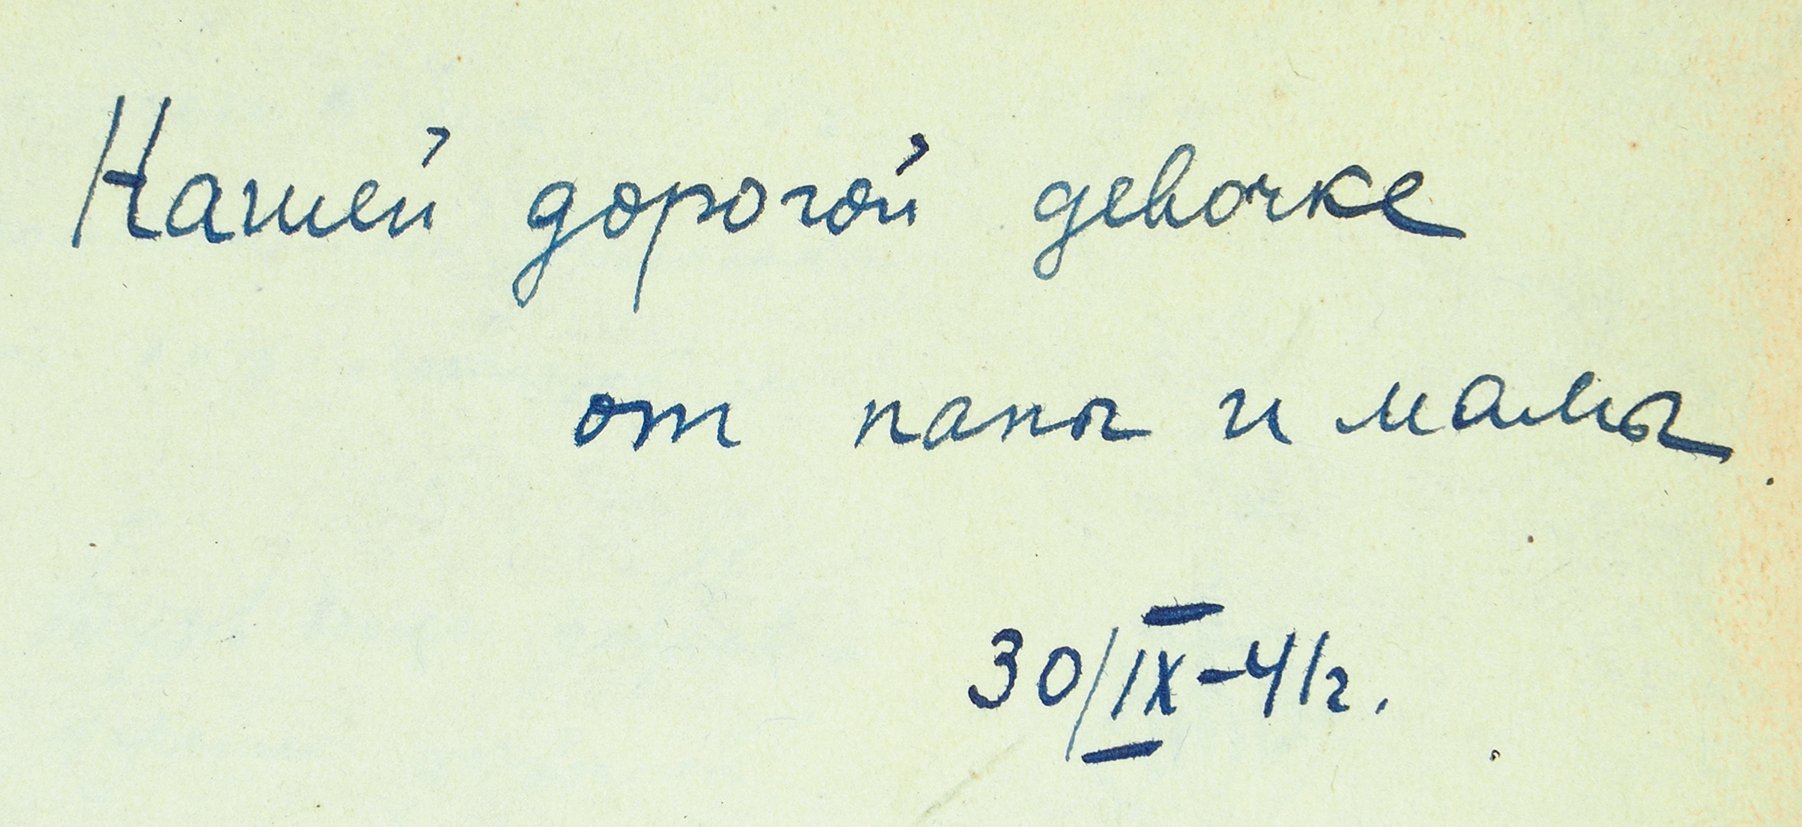 Нашей дорогой девочке
от папы и мамы
30/IX-41г.